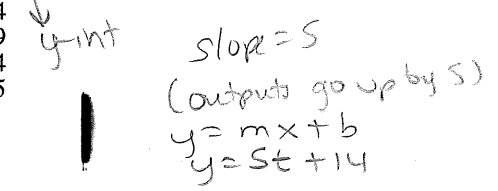 y-int
slope = 5
(outputs go up by 5)
y = mx + b
y = 5t + 14